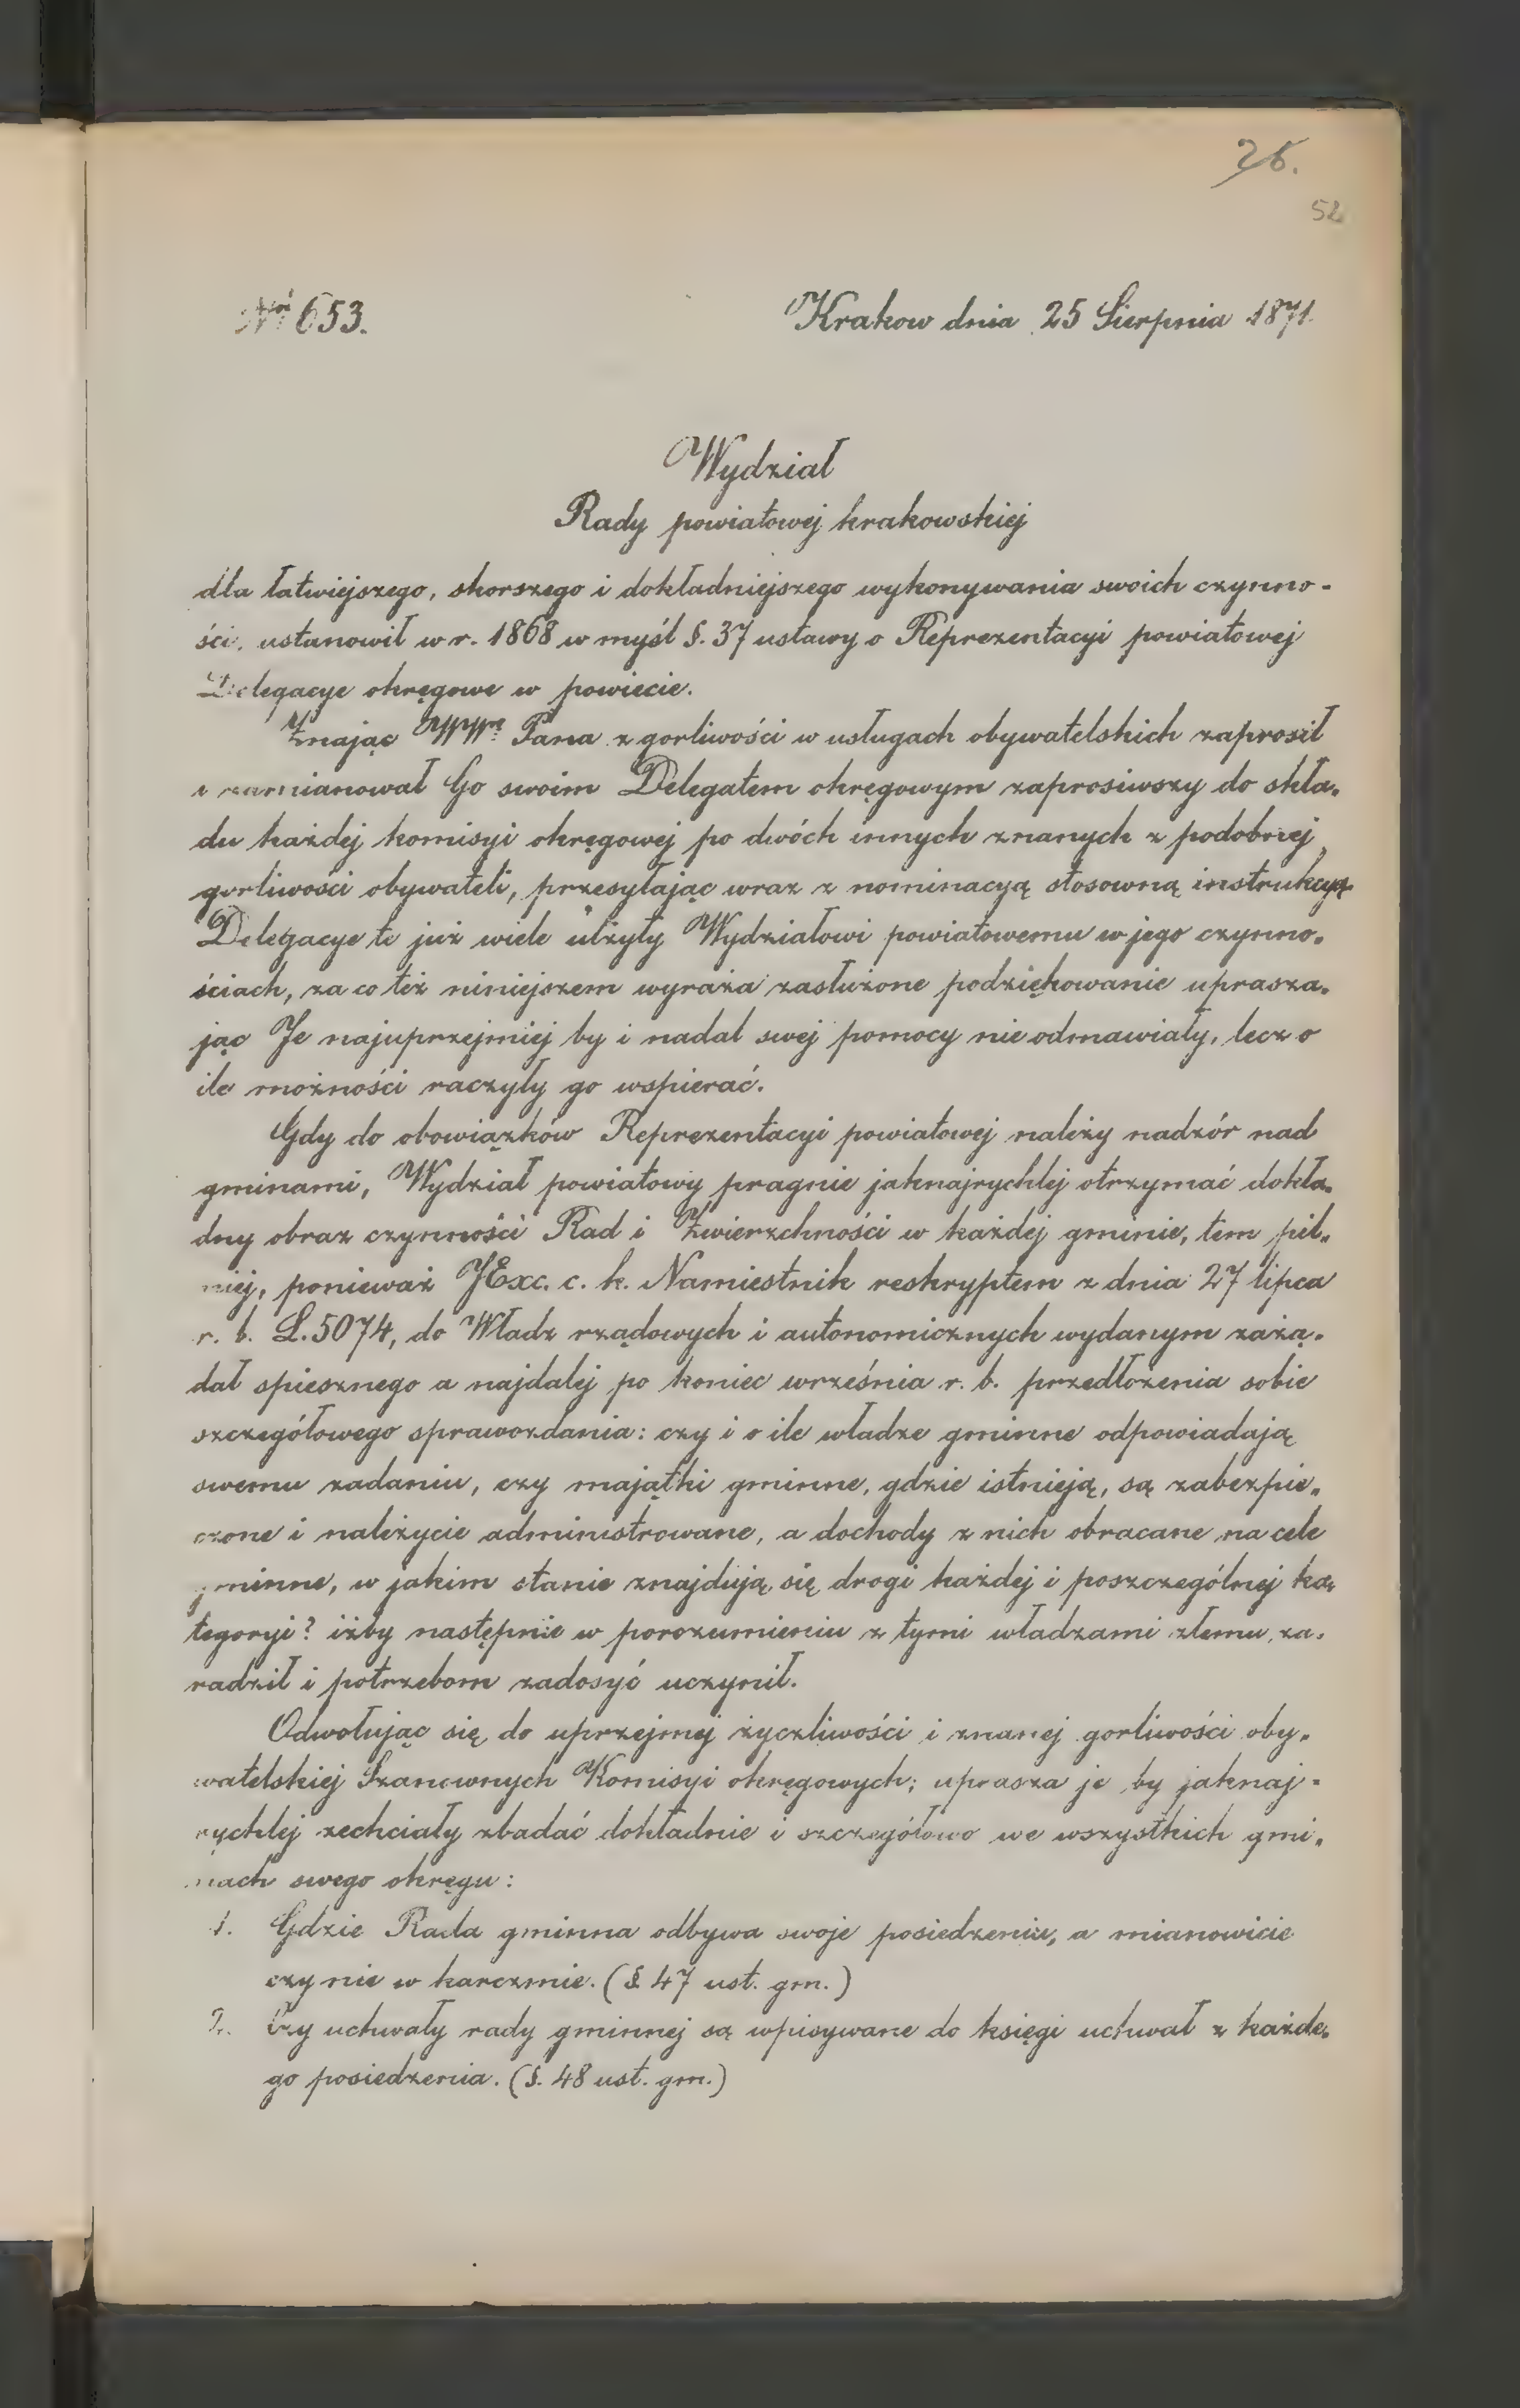 26.
52
Nr 653.
Krakow dnia 25 Sierpnia 1871.
Wydział
Rady powiatowej krakowskiej
dla łatwiejszego, skorszego i dokładniejszego wykonywania swoich czynno-
ści, ustanowił w r. 1868 w myśl §. 37 ustawy o Reprezentacyi powiatowej
Delegacye okręgowe w powiecie.
Znając WWgo Pana z gorliwości w usługach obywatelskich zaprosił
i zamianował Go swoim Delegatem okręgowym zaprosiwszy do skła„
du każdej komisyi okręgowej po dwóch innych znanych z podobnej
gorliwości obywateli, przesyłając wraz z nominacyą stosowną instrukcyą.
Delegacye te już wiele ulżyły Wydziałowi powiatowemu w jego czynno„
ściach, za co też niniejszem wyraża zasłużone podziękowanie uprasza„
jąc Je najuprzejmiej by i nadal swej pomocy nie odmawiały, lecz o
ile możności raczyły go wspierać.
Gdy do obowiązków Reprezentacyi powiatowej należy nadzór nad
gminami, Wydział powiatowy pragnie jaknajrychlej otrzymać dokła„
dny obraz czynności Rad i Zwierzchności w każdej gminie, tem pil„
niej, ponieważ JExc. c. k. Namiestnik reskryptem z dnia 27 lipca
r. b. L. 5074, do Władz rządowych i autonomicznych wydanym zażą„
dał spiesznego a najdalej po koniec września r. b. przedłożenia sobie
szczegółowego sprawozdania: czy i o ile władze gminne odpowiadają
swemu zadaniu, czy majątki gminne, gdzie istnieją, są zabezpie„
czone i należycie administrowane, a dochody z nich obracane na cele
gminne, w jakim stanie znajdują się drogi każdej i poszczególnej ka„
tegoryi? iżby następnie w porozumieniu z tymi władzami złemu za„
radził i potrzebom zadosyć uczynił.
Odwołując się do uprzejmej życzliwości i znanej gorliwości oby„
watelskiej Szanownych Komisyi okręgowych; uprasza je by jaknaj-
rychlej zechciały zbadać dokładnie i szczegółowo we wszystkich gmi„
nach swego okręgu:
1. Gdzie Rada gminna odbywa swoje posiedzenia, a mianowicie
czy nie w karczmie. (§ 47 ust. gm.)
2. Czy uchwały rady gminnej są wpisywane do księgi uchwał z każde„
go posiedzenia. (§. 48 ust. gm.)